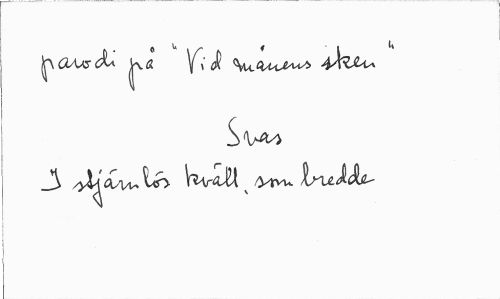 parodi på "Vid månens sken"
Svas
I stjärnlös kväll, som bredde